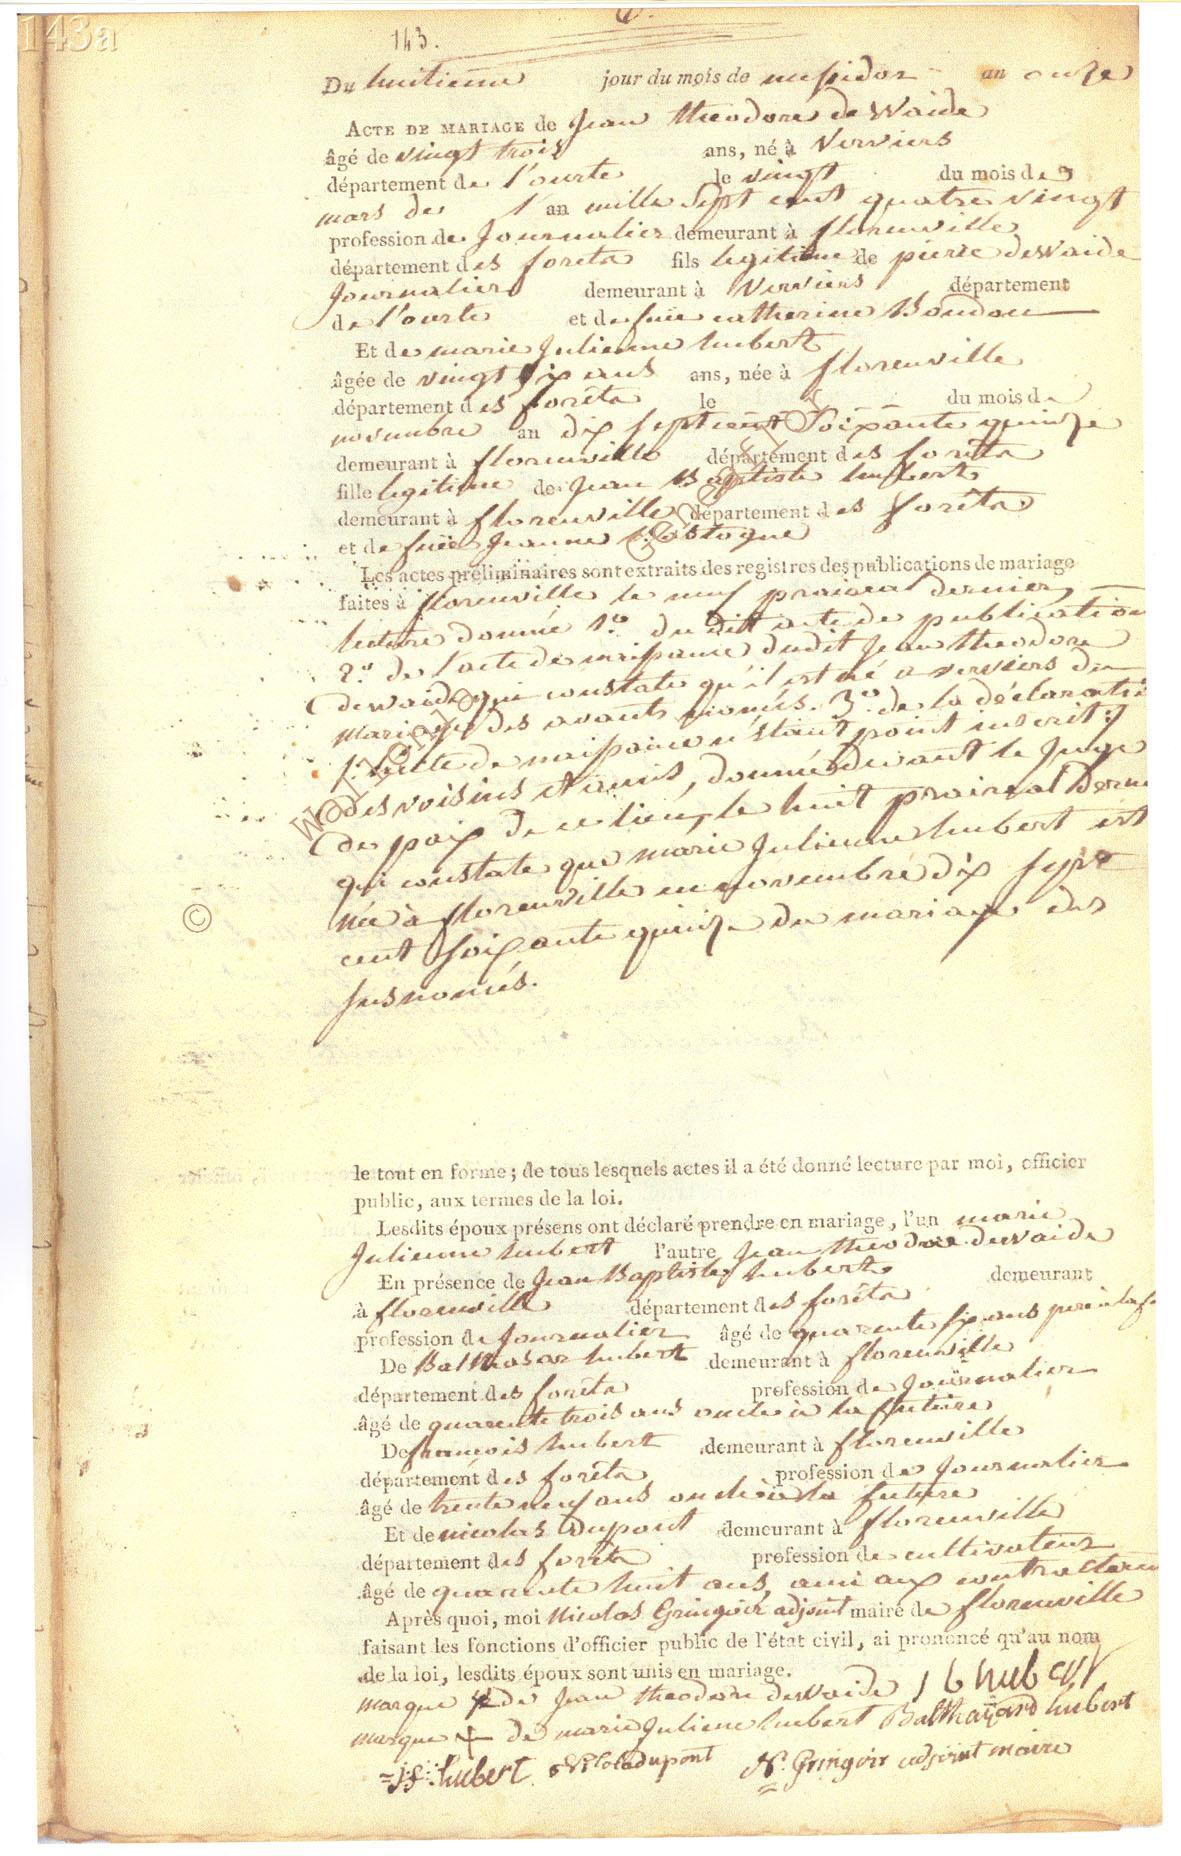 143a
143.
Du huitieme jour du mois de messidor an onze
ACTE DE MARIAGE de Jean theodore de Waide
âgé de vingt trois ans, né à Verviers
département de l'ourte le vingt du mois de
mars de l'an mille Sept cent quatre vingt
profession de Journalier demeurant à florenville
département des forêts fils legitime de pierre deWaide
Journalier demeurant à Verviers département
de l'ourte et de feüe catherine Boudou
Et de marie Julienne hubert
âgée de vingt six ans ans, née à florenville
département des forêts le du mois de
novembre an dix sept cent Soixante quinze
demeurant à florenville département des forêts
fille legitime de Jean Baptiste hubert
demeurant à florenville département des forêts
et de feüe Jeanne
Les actes préliminaires sont extraits des registres des publications de mariage
faites à florenville le neuf praireal dernier,
lecture donnée 1.º du dit acte de publication
2.º de l'acte de naissance dudit Jean theodore
dewaide qui constate qu'il est né a verviers du
mariage des avants només. 3.º de la déclarati
l'acte de naissance n'étant point inscrit
des voisins et amis, donnée devant le Juge
de paix de ce lieu, le huit praireal Dern
qui constate que marie Julienne hubert est
née à florenville en novembre dix sept
cent soixante quinze du mariage des
susnomés.
le tout en forme; de tous lesquels actes il a été donné lecture par moi, officier
public, aux termes de la loi.
Lesdits époux présens ont déclaré prendre en mariage, l'un marie
Julienne hubert l'autre Jean theodore dewaide
En présence de Jean Baptiste hubert demeurant
à florenville département des forêts
profession de Journalier âgé de quarente six ans pere à la
De Balthasar hubert demeurant à florenville
département des forêts profession de Journalier
âgé de quarente trois ans oncle à la future
De françois hubert demeurant à florenville
département des forêts profession de Journalier
âgé de trente neuf ans oncle à la future
Et de nicolas Dupont demeurant à florenville
département des forêts profession de cultivateur
âgé de quarente huit ans, ami aux contractans
Après quoi, moi Nicolas Gringoir adjoint maire de florenville
faisant les fonctions d'officier public de l'état civil, ai prononcé qu'au nom
de la loi, lesdits époux sont unis en mariage.
marque de Jean theodore dewaide J b hubert
marque + de marie Juliene hubert Balthazard hubert
j f hubert Nicola dupont N. Gringoir adjoint maire
©